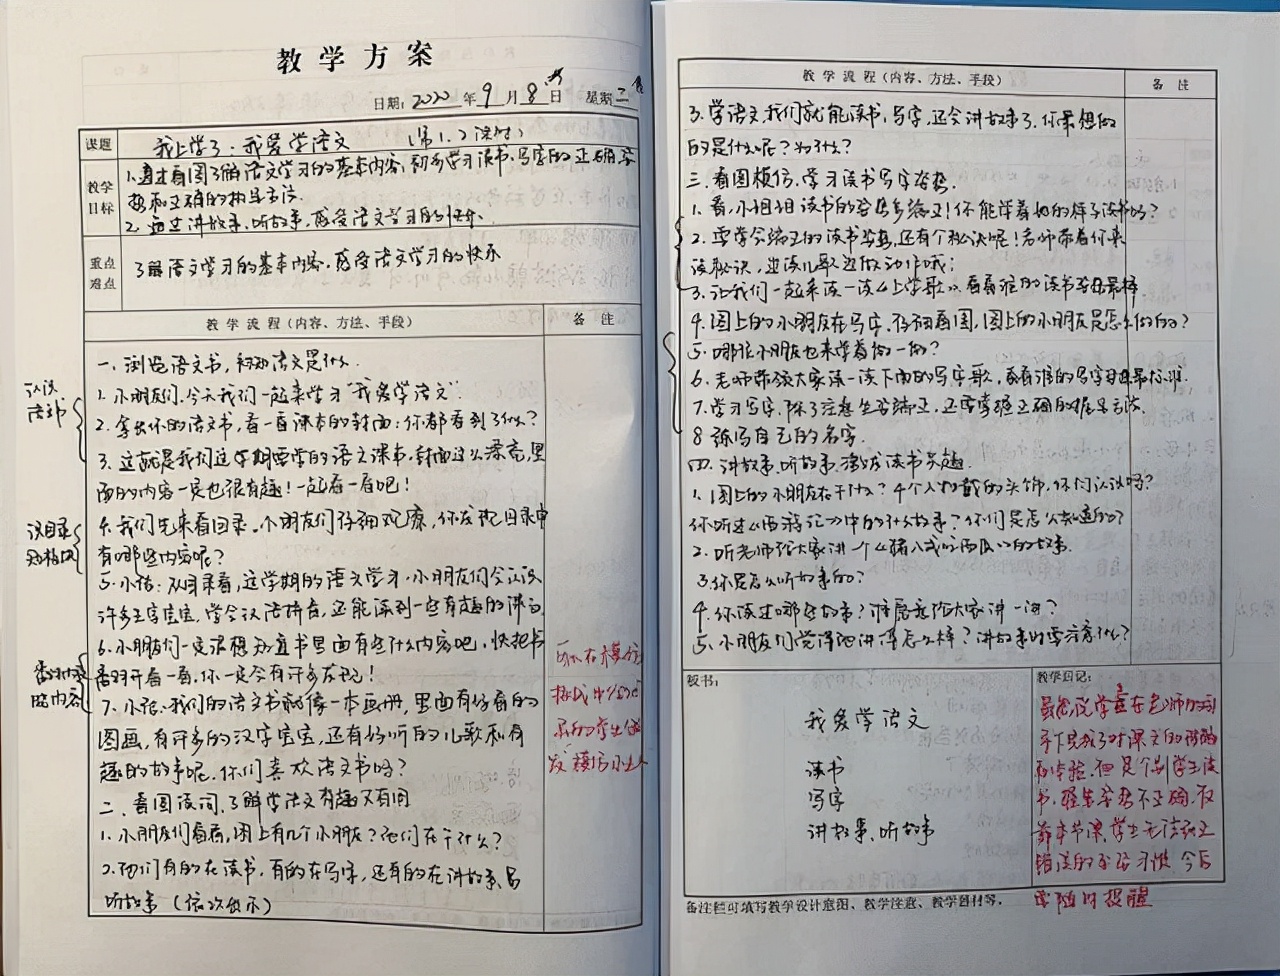 教学方案
日期：2020年9月8日 星期二
课题 我上学了·我爱学语文 （第1、2课时）
教学目标
1.通过看图了解语文学习的基本内容，初步学习读书、写字的正确姿
势和正确的执笔方法。
2.通过讲故事、听故事，感受语文学习的快乐。
重点难点
了解语文学习的基本内容，感受语文学习的快乐
教学流程（内容、方法、手段） 备注
认识
语文书
一、浏览语文书，初知语文是什么
1.小朋友们，今天我们一起来学习“我爱学语文”
2.拿出你的语文书，看一看课本的封面：你都看到了什么？
3.这就是我们这学期要学的语文课本，封面这么漂亮，里
面的内容一定也很有趣！一起看一看吧！
汉目录
知板块
4.我们先来看目录。小朋友们仔细观察，你发现目录中
有哪些内容呢？
5.小结：从目录看，这学期的语文学习，小朋友们会认识
许多生字宝宝，学会汉语拼音，还能读到一些有趣的课文
翻
内容
6.小朋友们一定很想知道书里面有些什么内容吧，快把书
翻开看一看，你一定会有许多发现！
7.小结：我们的语文书就像一本画册，里面有好看的
图画，有许多的汉字宝宝，还有好听的儿歌和有
趣的故事呢。你们喜欢语文书吗？
二、看图读词，了解学语文有趣又有用
1.小朋友们看看，图上有几个小朋友？他们在干什么？
2.他们有的在读书，有的在写字，还有的在讲故事、
听故事（依次出示）
教学流程（内容、方法、手段） 备注
3.学语文，我们就能读书，写字，还会讲故事了。你最想做
的是什么呢？为什么？
三、看图模仿，学习读书写字姿势。
1.看，小姐姐读书的姿势多端正！你能学着她的样子读书吗？
2.要学会端正的读书姿势，还有个秘诀呢！老师带着你来
读秘诀，边读儿歌边做动作哦：
3.让我们一起来读一读《上学歌》，看看谁的读书姿势最棒
4.图上的小朋友在写字，仔细看图，图上的小朋友是怎么做的？
5.哪位小朋友也来学着做一做？
6.老师带领大家读一读下面的写字歌，看看谁的写字姿势最标准
7.学习写字，除了注意坐姿端正，还要掌握正确的握笔方法。
8.练写自己的名字。
四、讲故事，听故事，激发读书兴趣
1.图上的小朋友在干什么？4个人物戴的头饰，你们认识吗？
你听过《西游记》中的什么故事？你们是怎么知道的？
2.听老师给大家讲一个《猪八戒吃西瓜》的故事。
3.你是怎么听故事的？
4.你读过哪些故事？谁愿意给大家讲一讲？
5.小朋友们觉得他讲得怎么样？讲故事时要注意什么？
板书：
我爱学语文
读书
写字
讲故事、听故事
教学后记：
虽然说学童在老师的引
导下完成了对课文的
和体验，但是个别学生读
书，握笔姿势不正确，仅
靠本节课，学生无法改正
错误的书写习惯，今后
要随时提醒
备注栏可填写教学设计意图、教学注意、教学器材等。